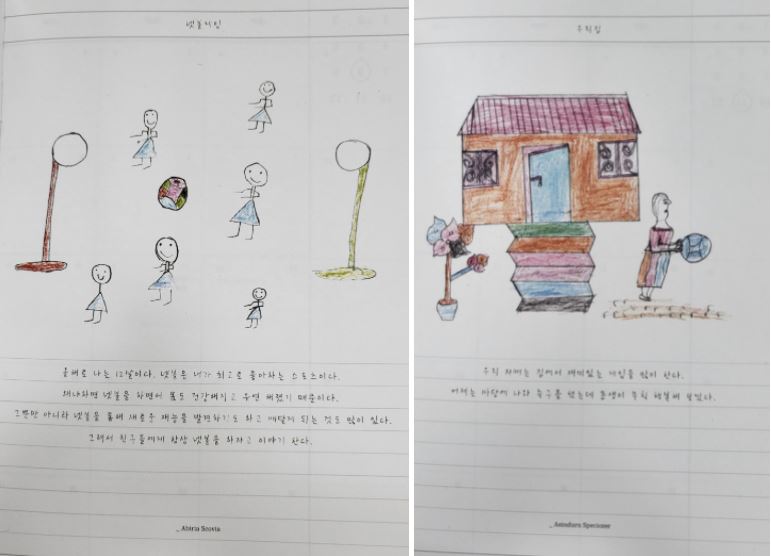 넷볼게임
올해로 나는 12살이다. 넷볼은 내가 최고로 좋아하는 스포츠이다.
왜냐하면 넷볼을 하면서 몸도 건강해지고 유연 해졌기 때문이다.
그뿐만 아니라 넷볼을 통해 새로운 재능을 발견하기도 하고 깨닫게 되는 것도 많이 있다.
그래서 친구들에게 항상 넷볼을 하자고 이야기 한다.
_ Abiria Scovia
우리집
우리 자매는 집에서 재미있는 게임을 많이 한다.
어제는 마당에 나와 축구를 했는데 동생이 무척 행복해 보였다.
_ Asinduru Specioser